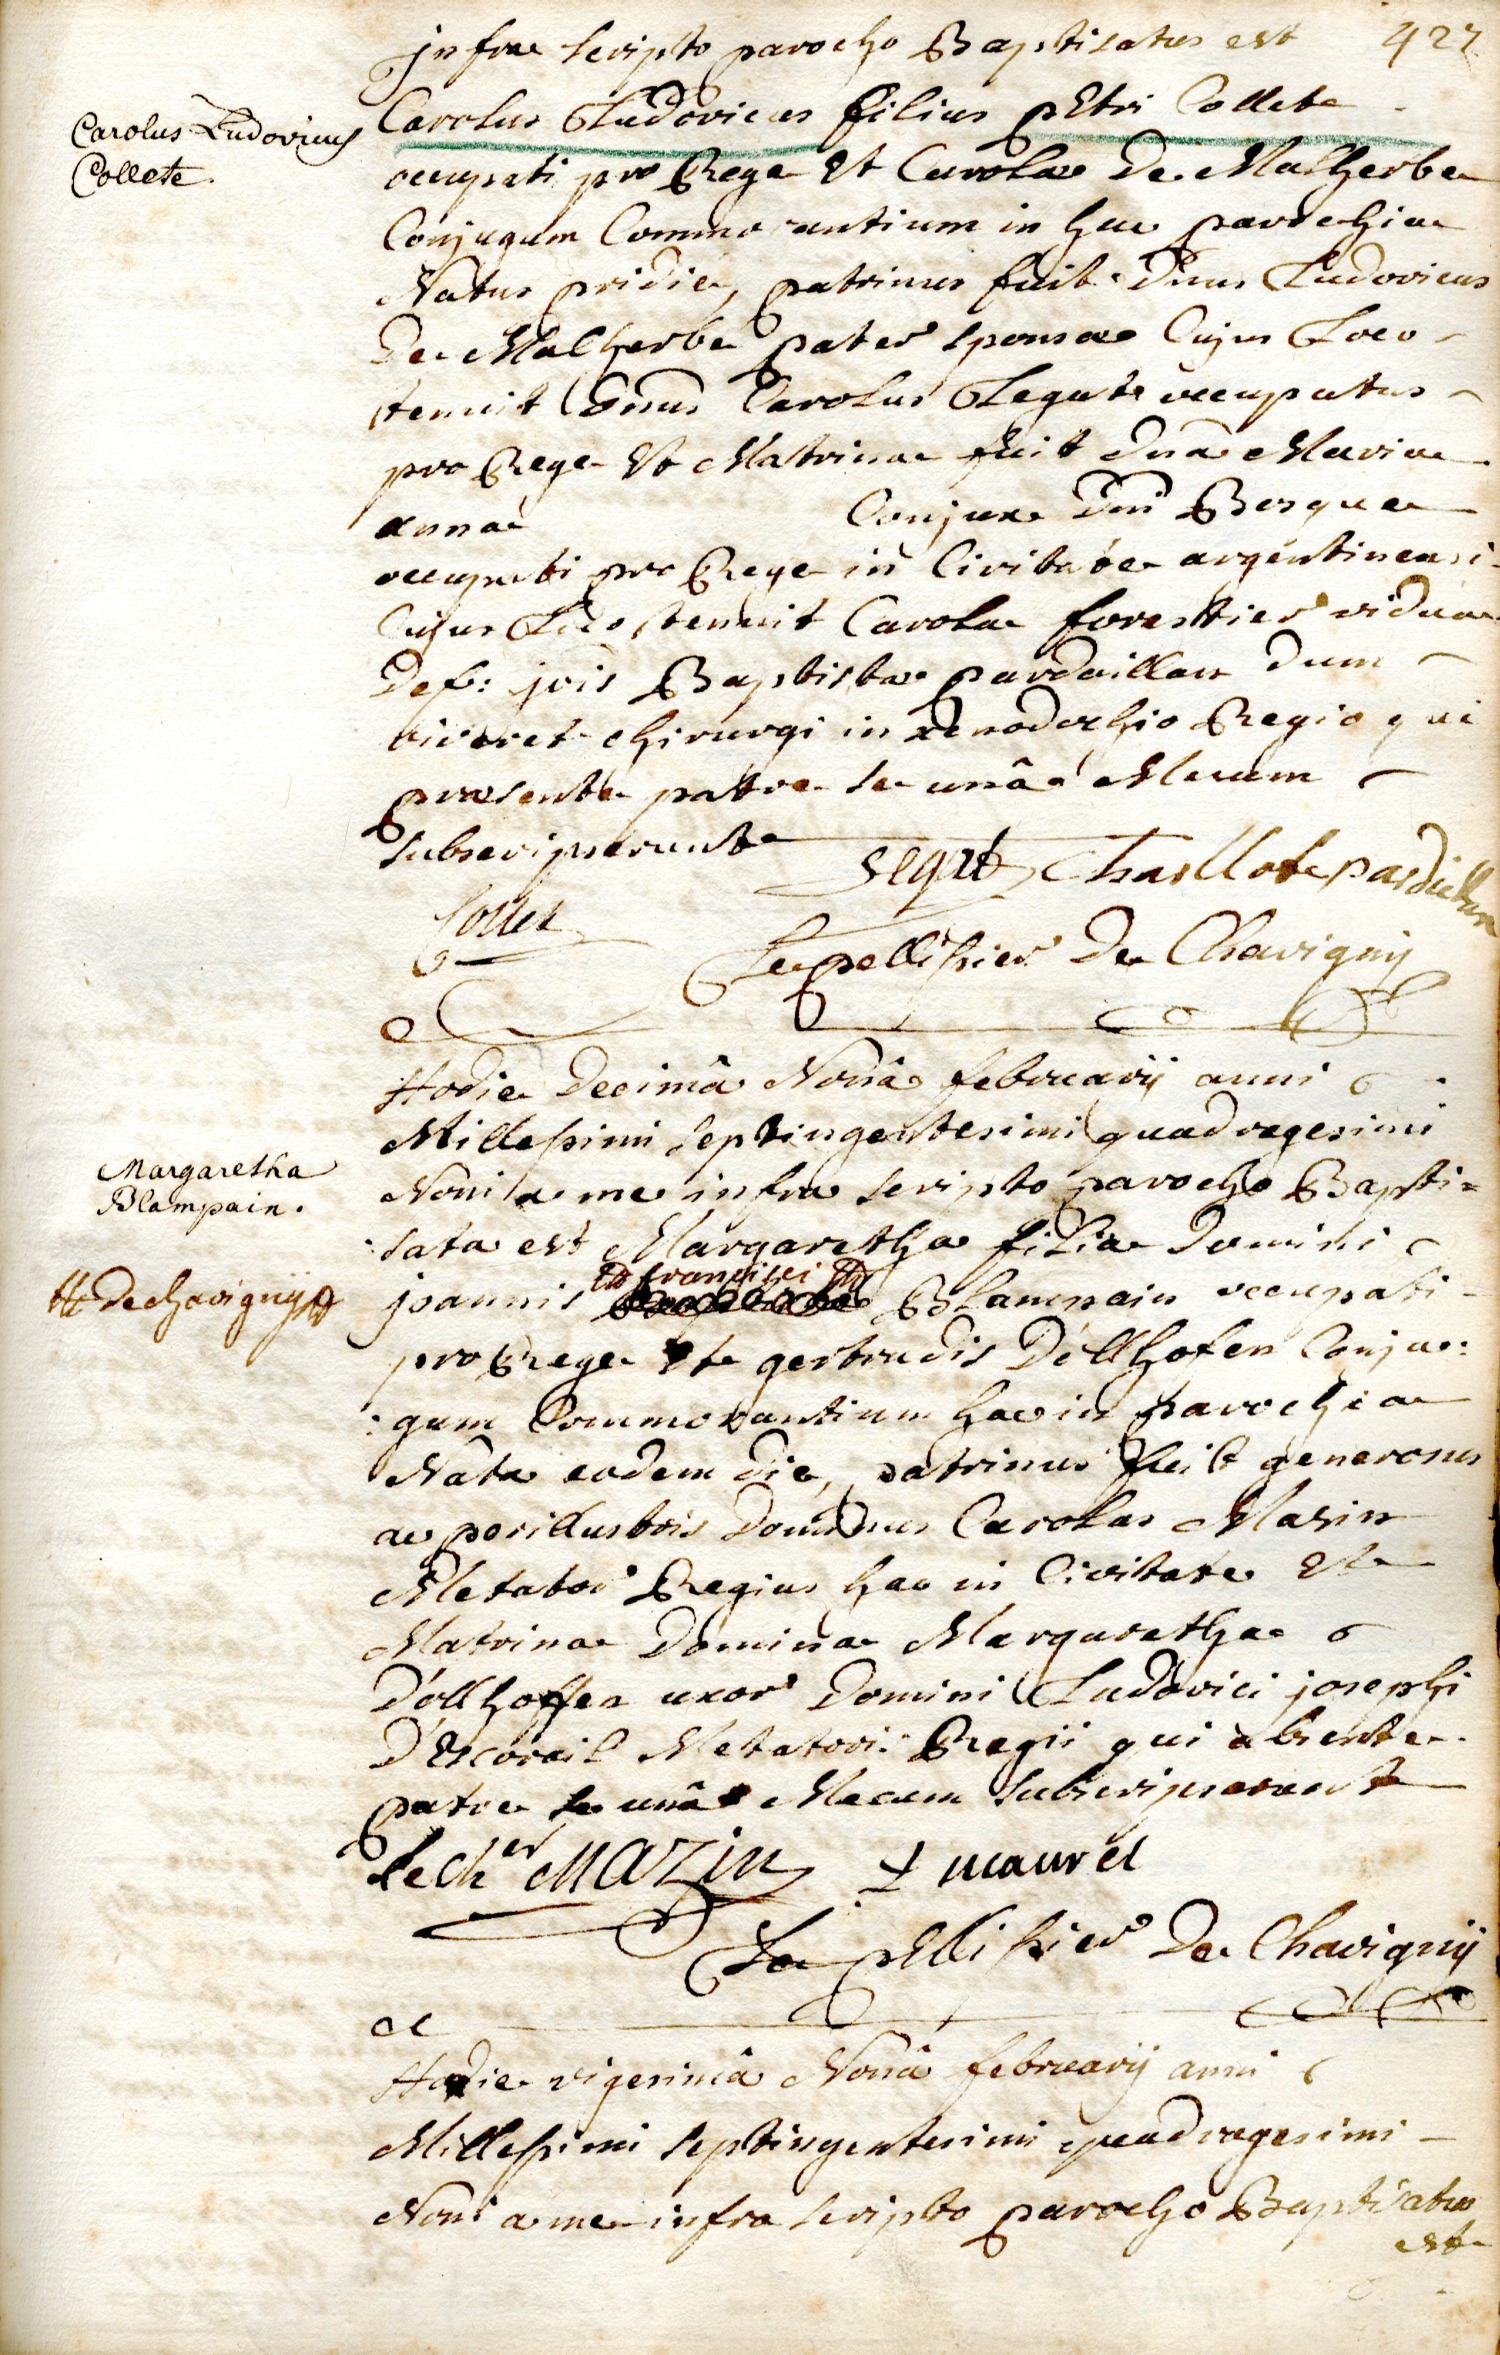 427
infra scripto parocho Baptisatus est
Carolus Ludovicus
Collete.
Carolus Ludovicus filius petri Collet
occupati pro Rege et Carolae De Malherbe
Conjugum Commorantium in hac parochia
Natus pridie, patrinus fuit Dnus Ludovicus
De Malherbe pater sponsae Cujus Loco
tenuit Dnus Carolus Legat occupatus
pro Rege et Matrina fuit Dna Maria
anna Conjux Dni Bosque
occupati pro Rege in Civitate argentinensi
Cujus Loco tenuit Carola forestier vidua
Def: jois Baptistae pardaillan dum
viveret chirurgi in xenodochio Regio qui
praesente patre se unâ Mecum
subscripserunt
Legat Charllote pardiellan
Collet
Le pellissier De Chavigny
Hodie Decimâ Nonâ februarij anni
Millessimi septingentesimi quadragesimi
Margaretha
Blampain.
Noni a me infra scripto parocho Bapti=
:sata est Margaretha filia Domini
# De chavignÿ #
joannis # francisci # Blampain occupati
pro Rege et gertrudis Döllhofen Conju:
:gum Commorantium hac in parochia
Nata eodem die, patrinus fuit generosus
ac perillustris Dominus Carolus Masin
Metator Regius hac in Civitate et
Matrina Domina Margaretha
Döllhoffen uxor Domini Ludovici josephi
D'Escorail Metatori Regii qui absente
patre se unâ Mecum subscripserunt
Le Cher Mazin + maurel
Le pellissier De Chavignÿ
Hodie vigesimâ Nonâ februarij anni
Millessimi septingentesimi quadragesimi
Noni a me infra scripto parocho Baptisatus
est